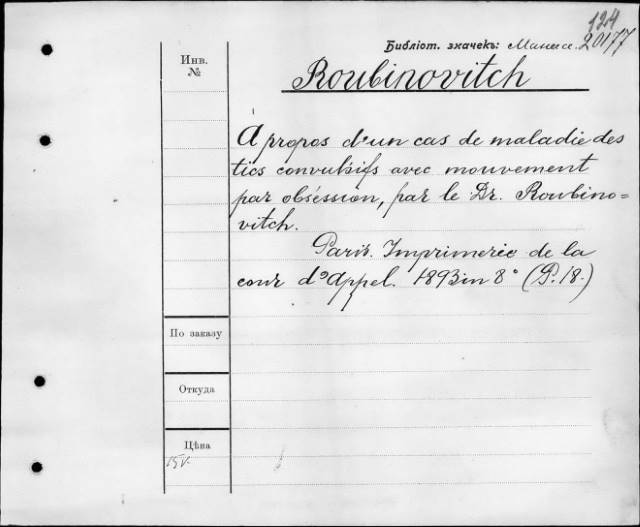 124
Библіот. значекъ: 20177
Инв.
№
Roubinovitch
A propos d'un cas de maladie des
tics convulsifs avec mouvement
par obséssion, par le Dr. Roubino=
vitch.
Paris. Imprimerie de la
cour d'appel. 1893 in 8° (P. 18.)
По заказу
Откуда
Цѣна